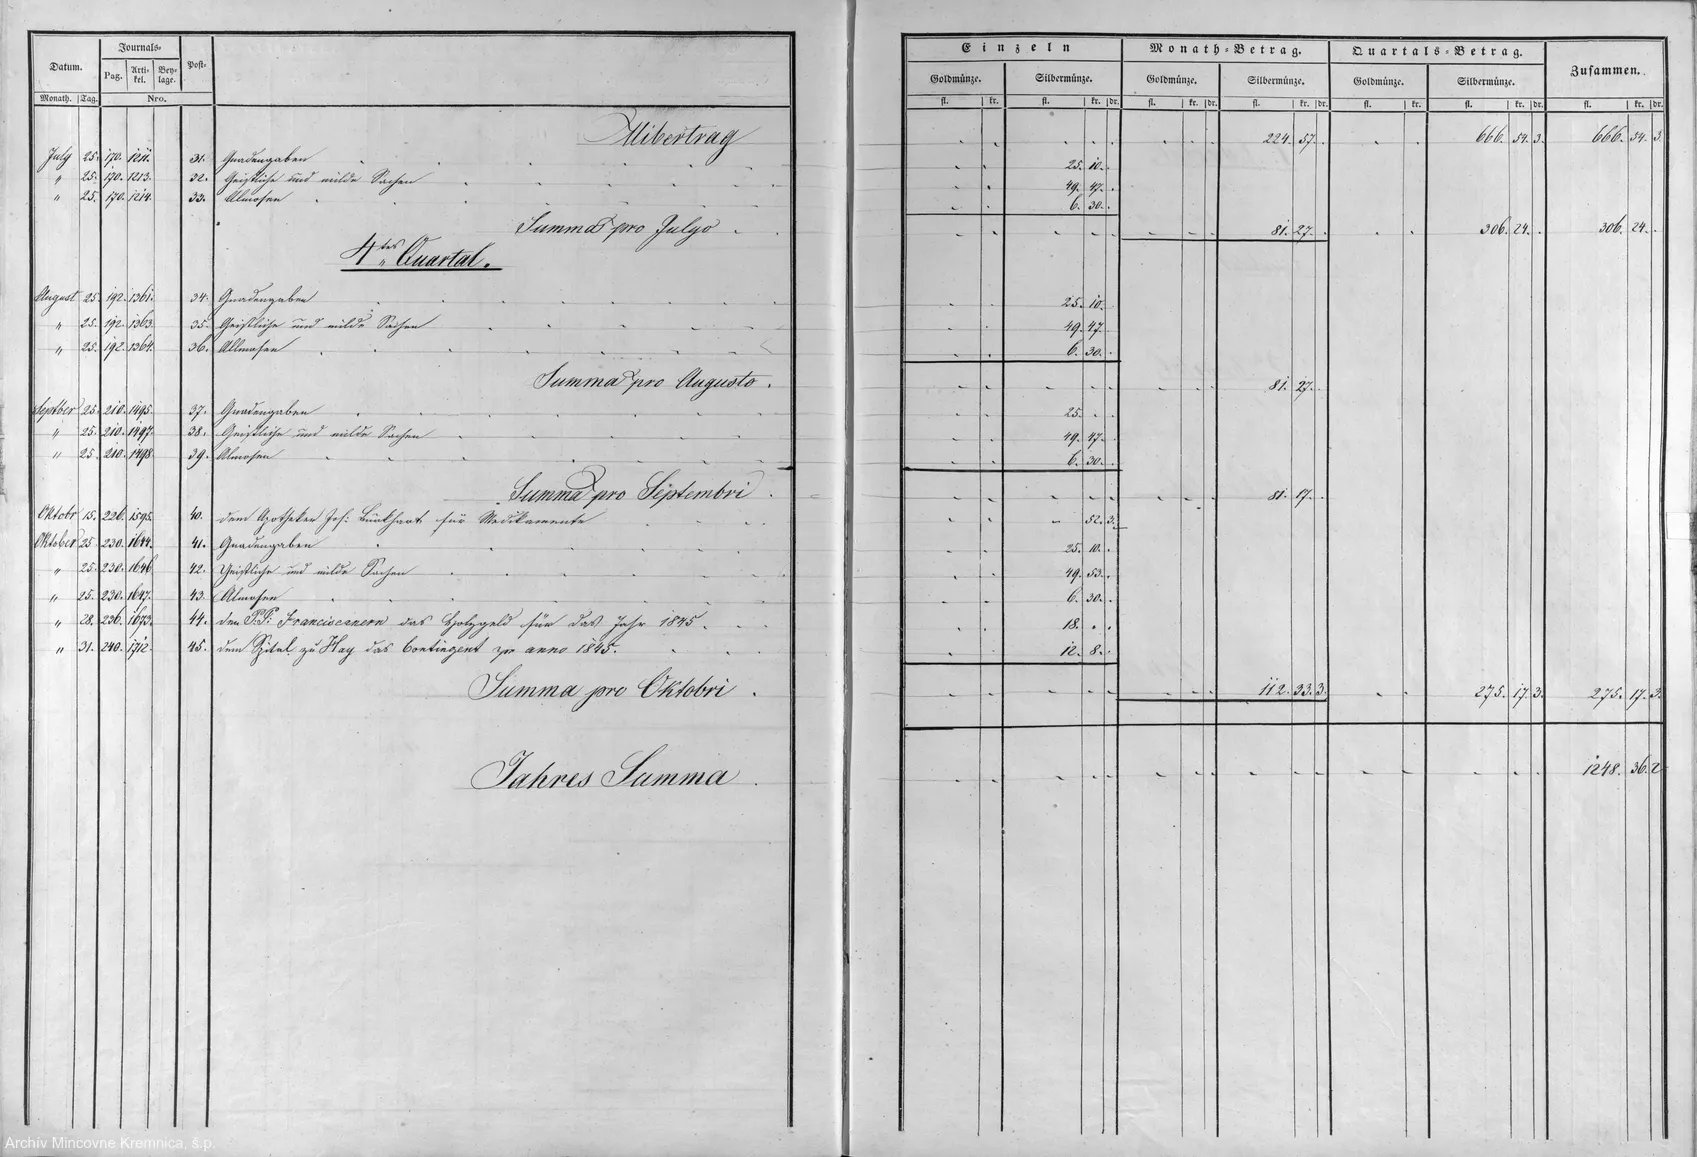 Datum. Journals- Post- Einzeln Monath-Betrag. Quartals-Betrag. Zusammen.
Pag. Arti-kel. Bey-lage. Goldmünze. Silbermünze. Goldmünze. Silbermünze. Goldmünze. Silbermünze.
Monath. Tag. Nro. fl. kr. fl. kr. dr. fl. kr. dr. fl. kr. dr. fl. kr. fl. kr. dr. fl. kr. dr.
224. 57. 666. 54. 3. 666. 54. 3.
July 25. 170. 1211. 31. Gnadengaben 25. 10.
" 25. 170. 1213. 32. Geistliche und milde Sachen 49. 47.
" 25. 170. 1214. 33. Almosen 6. 30.
Summa pro Julyo 81. 27. 306. 24. 306. 24.
4tes Quartal.
August 25. 192. 1361. 34. Gnadengaben 25. 10.
" 25. 192. 1363. 35. Geistliche und milde Sachen 49. 47.
" 25. 192. 1364. 36. Allmosen 6. 30.
Summa pro Augusto. 81. 27.
Septber 25. 210. 1495. 37. Gnadengaben 25.
" 25. 210. 1497. 38. Geistliche und milde Sachen 49. 47.
" 25. 210. 1498. 39. Almosen 6. 30.
Summa pro Septembri. 81. 17.
Oktobr 15. 226. 1595. 40. dem Apotheker Jos: Burkhart für Medikamente 52. 3.
Oktober 25. 230. 1644. 41. Gnadengaben 25. 10.
" 25. 230. 1646. 42. Geistliche und milde Sachen 49. 53.
" 25. 230. 1647. 43. Almosen 6. 30.
" 28. 236. 1673. 44. den P.P. Franciscanern das Holzgeld für das Jahr 1845. 18.
" 31. 240. 1712. 45. dem Spital zu Hay das Contingent pr anno 1845. 12. 8.
Summa pro Oktobri. 112. 33. 3. 275. 17. 3. 275. 17. 3.
Jahres Summa. 1248. 36. 2
Archív Mincovne Kremnica, š.p.